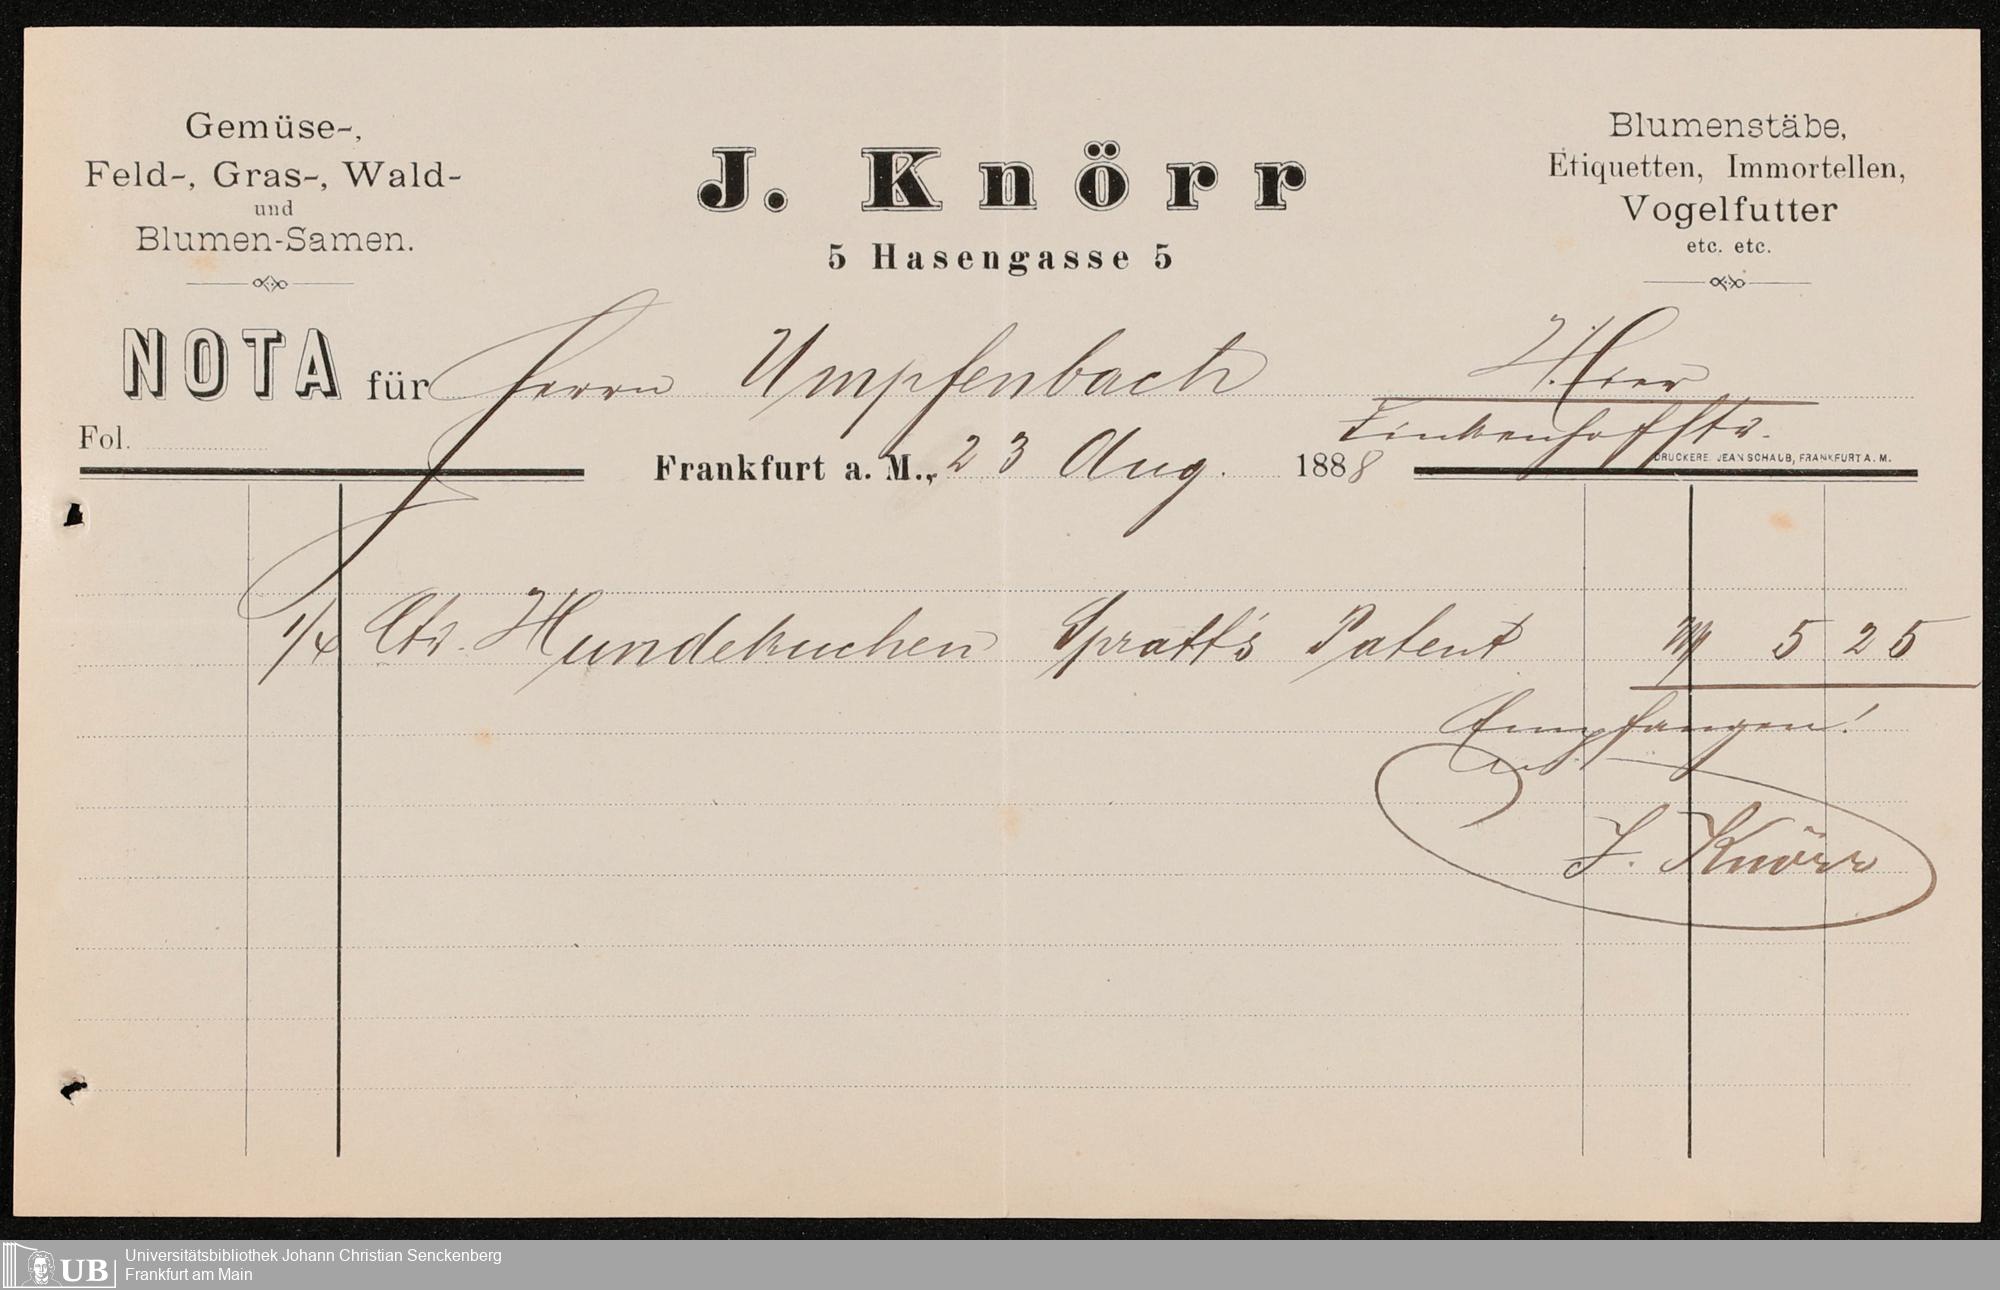 Gemüse-,
Feld-, Gras-, Wald-
und
Blumen-Samen.
J. Knörr
5 Hasengasse 5
Blumenstäbe,
Etiquetten, Immortellen,
Vogelfutter
etc. etc.
NOTA für Herrn Umpfenbach Hier
Finkenhofstr.
Fol.
Frankfurt a. M., 23 Aug. 1888
DRUCKEREI JEAN SCHAUB, FRANKFURT A. M.
1/4 Ctr. Hundekuchen Spratt's Patent M 5 25
Empfangen!
J. Knörr
UB
Universitätsbibliothek Johann Christian Senckenberg
Frankfurt am Main